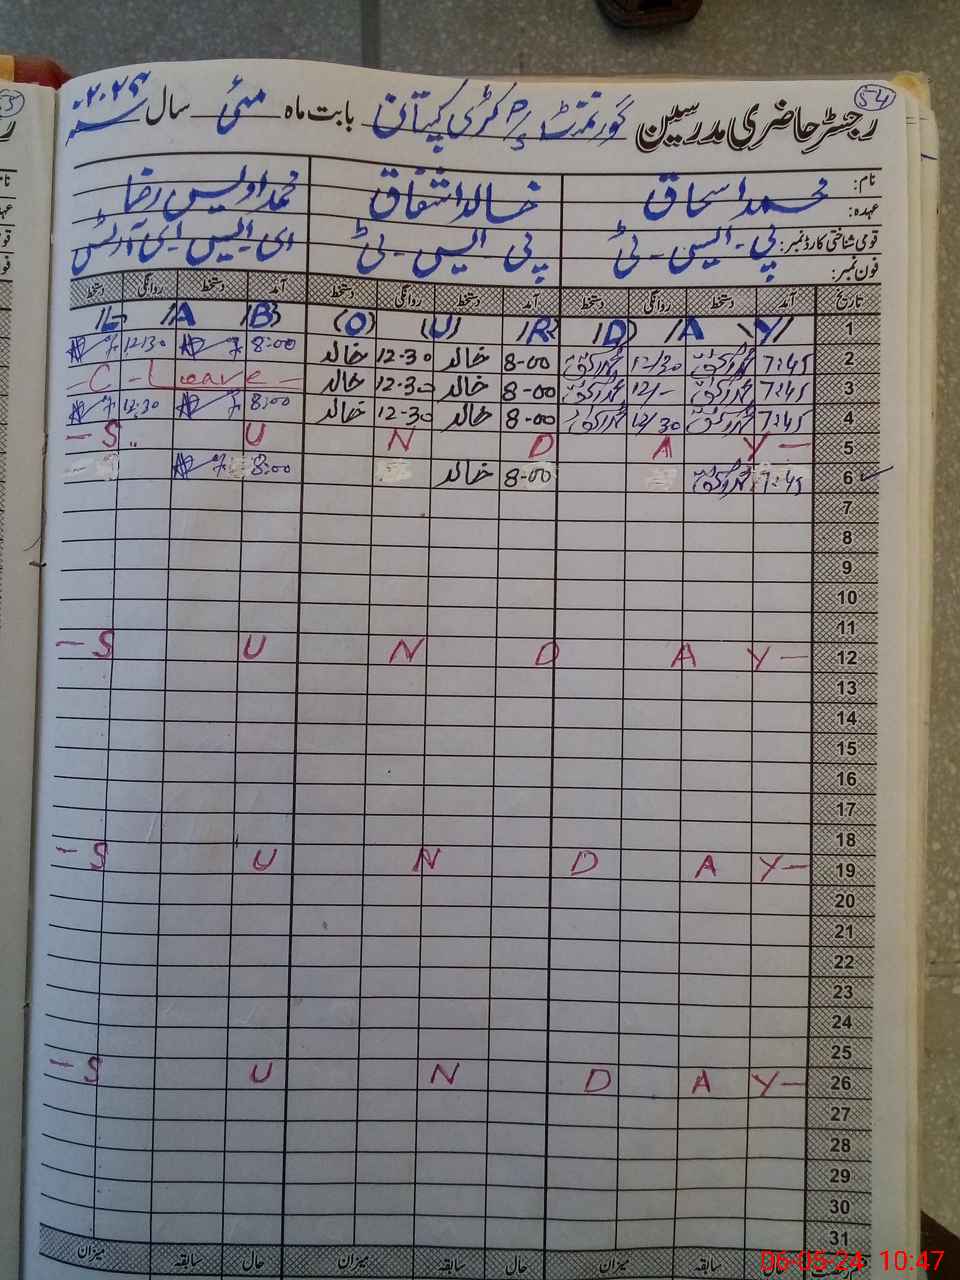 54
رجسٹر حاضری مدرسین گورنمنٹ بابت ماہ مئی سال ۲۰۲۴
نام: محمد اسحاق خالد اشفاق محمد اویس رضا
عہدہ:
قومی شناختی کارڈ نمبر: پی۔ایس۔ٹی پی ایس۔ٹی
فون نمبر:
تاریخ آمد دستخط روانگی دستخط آمد دستخط روانگی دستخط آمد دستخط روانگی دستخط
1 L A B O U R D A Y
2 7:45 12/30 8-00 خالد 12-30 خالد 8:00 12:30
3 7:45 12/- 8-00 خالد 12-30 خالد - C - Leave -
4 7:45 12/30 8-00 خالد 12-30 خالد 8:00 12:30
5 - S U N D A Y -
6 7:45 8-00 خالد 8:00
7
8
9
10
11
12 - S U N D A Y -
13
14
15
16
17
18
19 - S U N D A Y -
20
21
22
23
24
25
26 - S U N D A Y -
27
28
29
30
31
حال سابقہ میزان حال سابقہ میزان حال سابقہ میزان
06-05-24 10:47